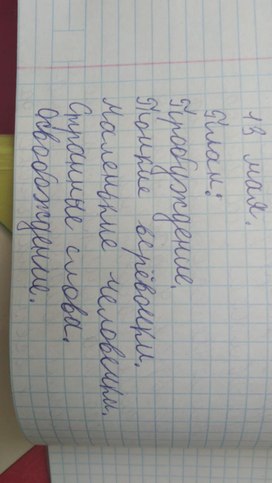 13 мая.
План:
Пробуждение.
Тонкие верёвочки.
Маленькие человечки.
Странные слова.
Освобождение.